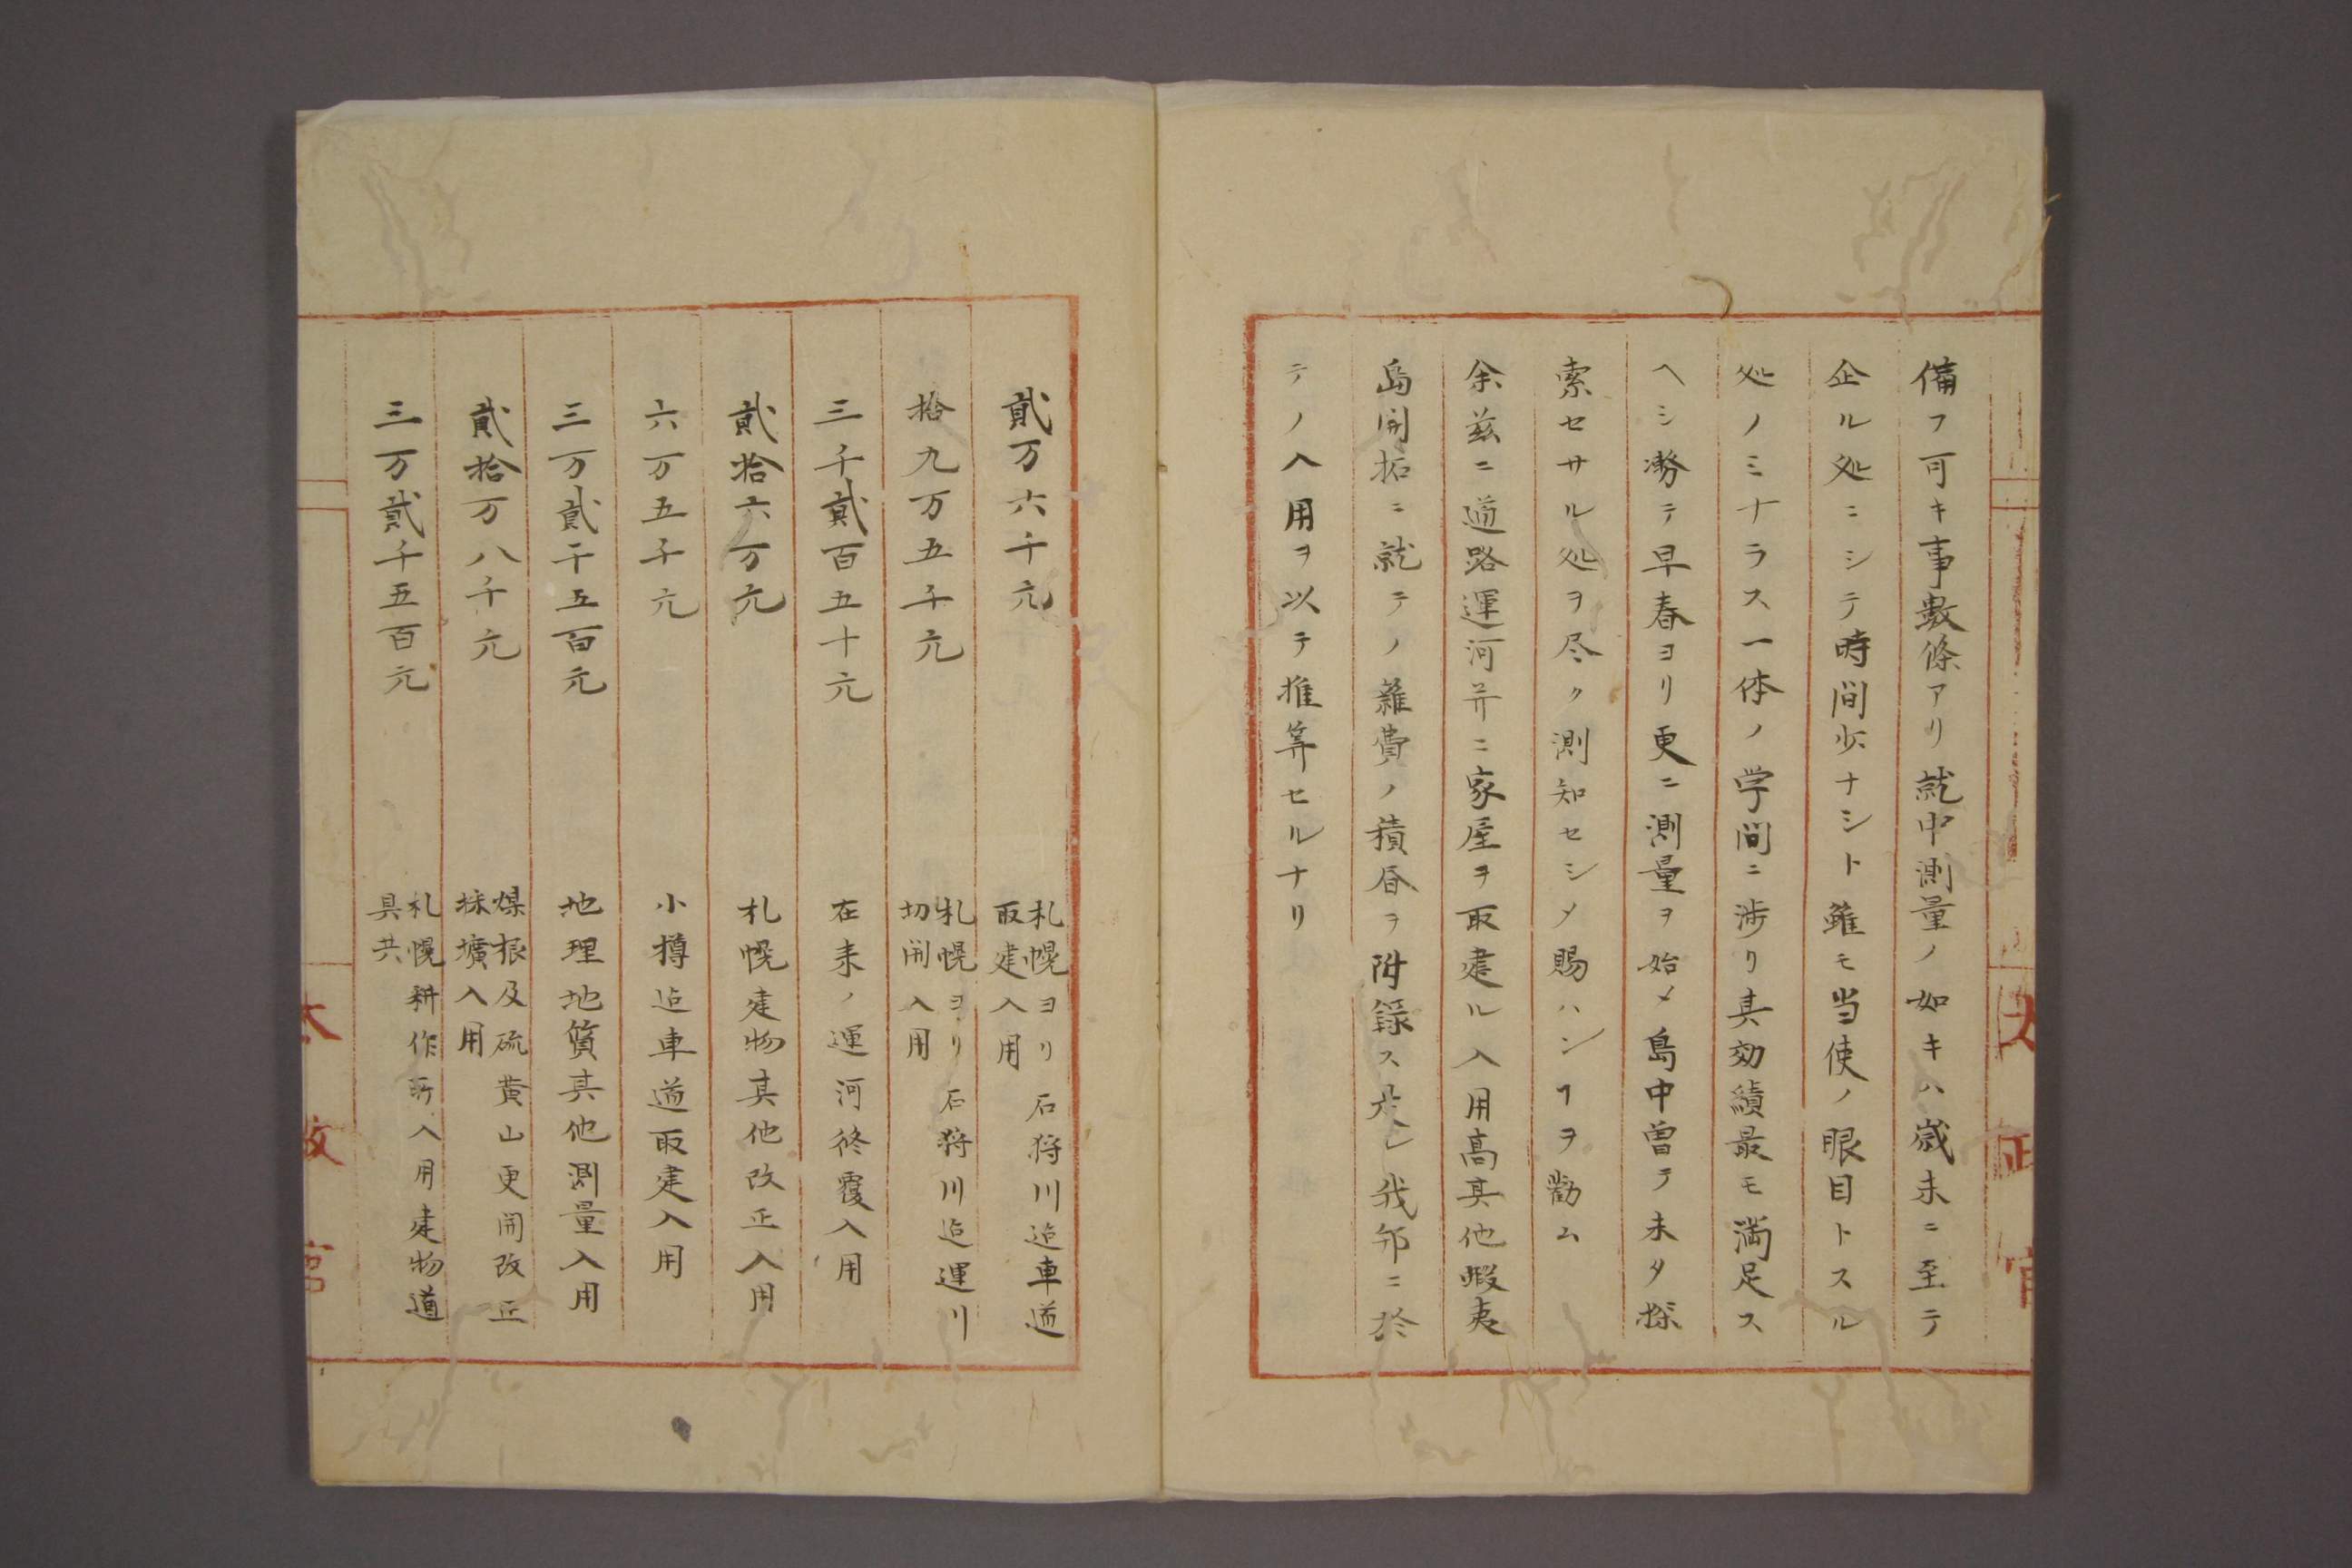 備フ可キ事数條アリ就中測量ノ如キハ歳未ニ至テ
企ル処ニシテ時間少ナシト雖モ当使ノ眼目トスル
処ノミナラス一体ノ学間ニ渉リ其効績最モ満足ス
ヘシ漸テ早春ヨリ更ニ測量ヲ始メ島中曽テ未タ探
索セサル処ヲ尽ク測知セシメ賜ハンヿヲ勸ム
余茲ニ道路運河并ニ家屋ヲ取建ル入用高其他蝦夷
島開拓ニ就テノ雜費ノ積昏ヲ附録ス是レ我邦ニ於
テノ入用ヲ以テ推算セルナリ
貳万六千元 札幌ヨリ石狩川迠車道
取建入用
拾九万五千元 札幌ヨリ石狩川迠運川
切開入用
三千貳百五十元 在来ノ運河修覆入用
貳拾六万元 札幌建物其他改正入用
六万五千元 小樽迠車道取建入用
三万貳千五百元 地理地質其他測量入用
貳拾万八千元 煤根及硫黄山更開改正
採壙入用
三万貳千五百元 札幌耕作所入用建物道
具共
太政官
太政官